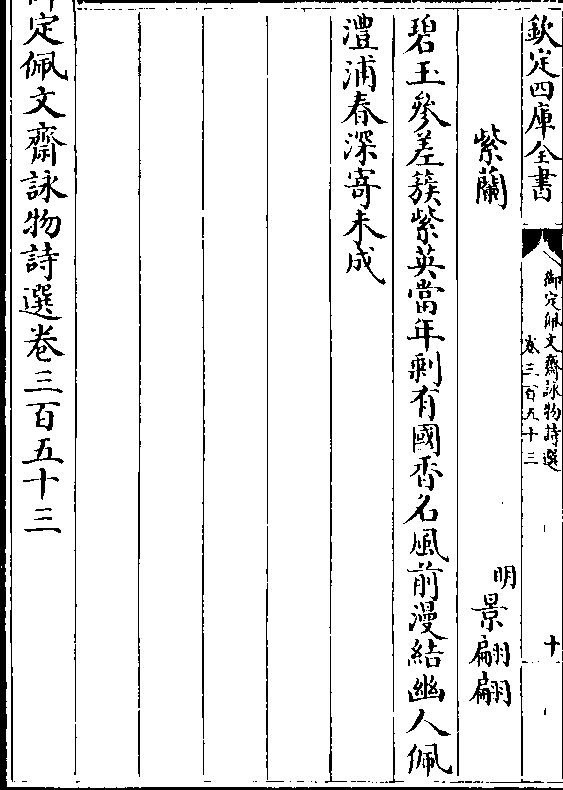 欽定四庫全書
御定佩文齋詠物詩選
卷三百五十三
十
紫蘭
明景翩翩
碧玉參差簇紫英當年剩有國香名風前漫結幽人佩
澧浦春深寄未成
御定佩文齋詠物詩選卷三百五十三